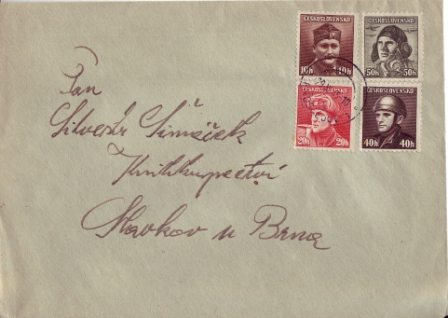 ČESKOSLOVENSKO ČESKOSLOVENSKO
10h 10h 50h 50h
ČESKOSLOVENSKO ČESKOSLOVENSKO
20h 20h 40h 40h
Pan
Silvestr Šimáček
Knihkupectví
Slavkov u Brna